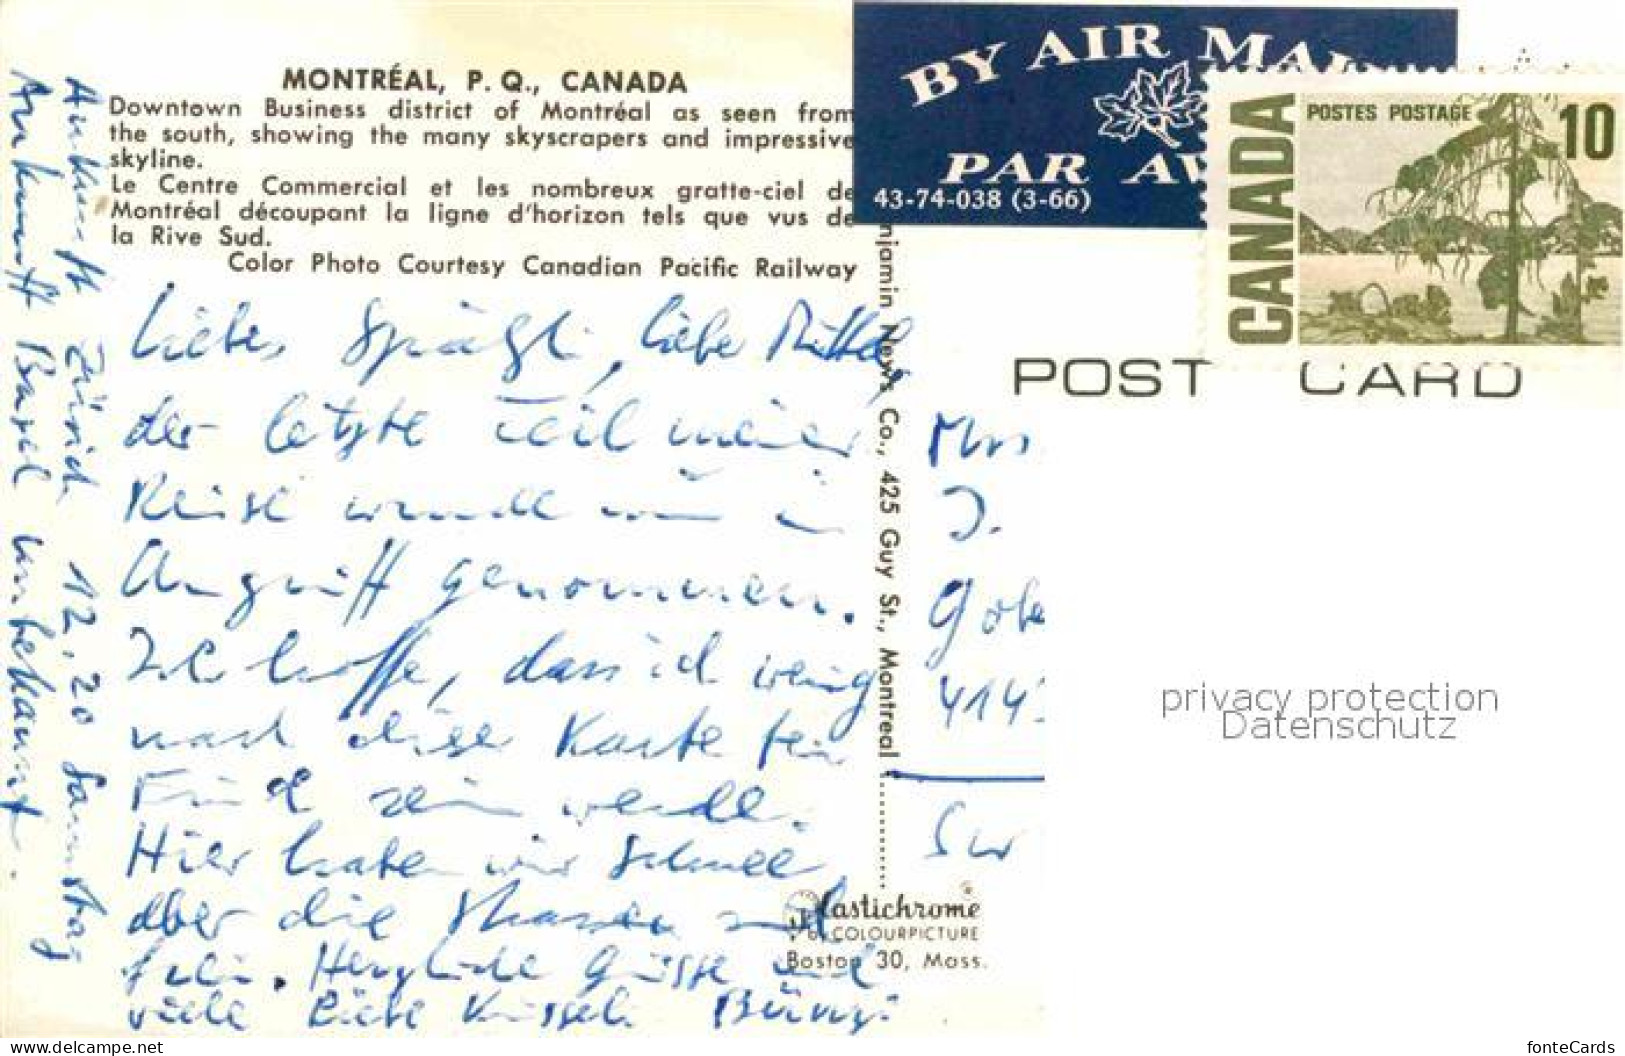 MONTRÉAL, P. Q., CANADA
Downtown Business district of Montréal as seen from
the south, showing the many skyscrapers and impressive
skyline.
Le Centre Commercial et les nombreux gratte-ciel de
Montréal découpant la ligne d'horizon tels que vus de
la Rive Sud.
Color Photo Courtesy Canadian Pacific Railway
Liebes Spätzli, liebe
der letzte Teil meiner
Reise wurde nun in
Angriff genommen.
Ich hoffe, dass ich wenig
nach diese Karte bei
Eüch sein werde.
Hier haben wir Schnee
aber die Strassen sind
frei. Herzliche Grüsse und
viele liebe Küsseli
Ankunft Zürich 12.20 Samstag
Ankunft Basel unbekannt.
njamin News Co., 425 Guy St., Montreal
Plastichrome
COLOURPICTURE
Boston 30, Mass.
BY AIR MAI
PAR AV
43-74-038 (3-66)
CANADA
POSTES POSTAGE
10
POST CARD
Mrs
J.
Gobe
414
privacy protection
Datenschutz
www.delcampe.net
fonteCards